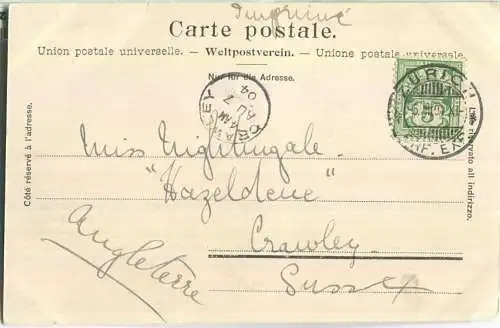 Imprimé
Carte postale.
Union postale universelle. - Weltpostverein. - Unione postale universale.
Nur für die Adresse.
Côté réservé à l'adresse.
ZÜRICH
BRF. EXP.
5
CRAWLEY
AM
AU 7
04
Miss Nightingale.
"Hazeldene"
Crawley
Sussex
Angleterre
riservato all indirizzo.